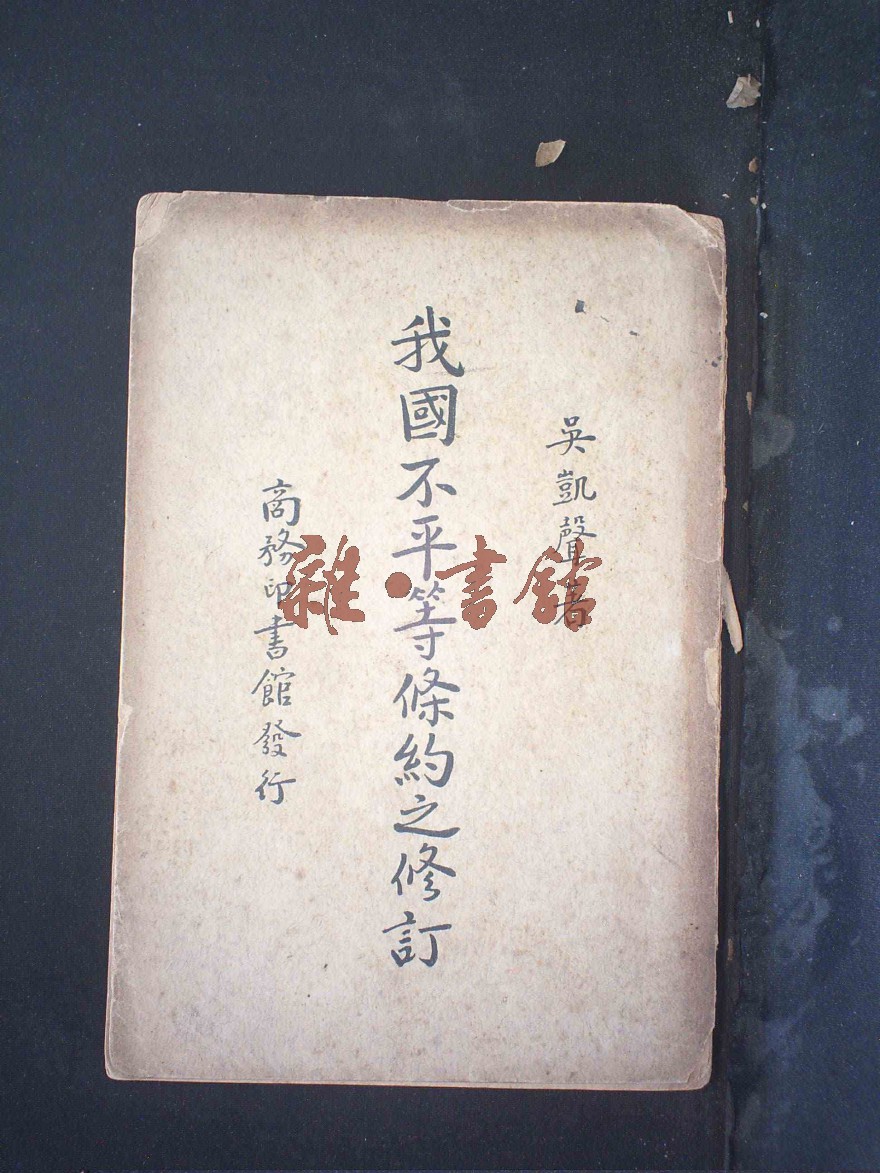 吳凱聲著
我國不平等條約之修訂
商務印書館發行
雜·書館